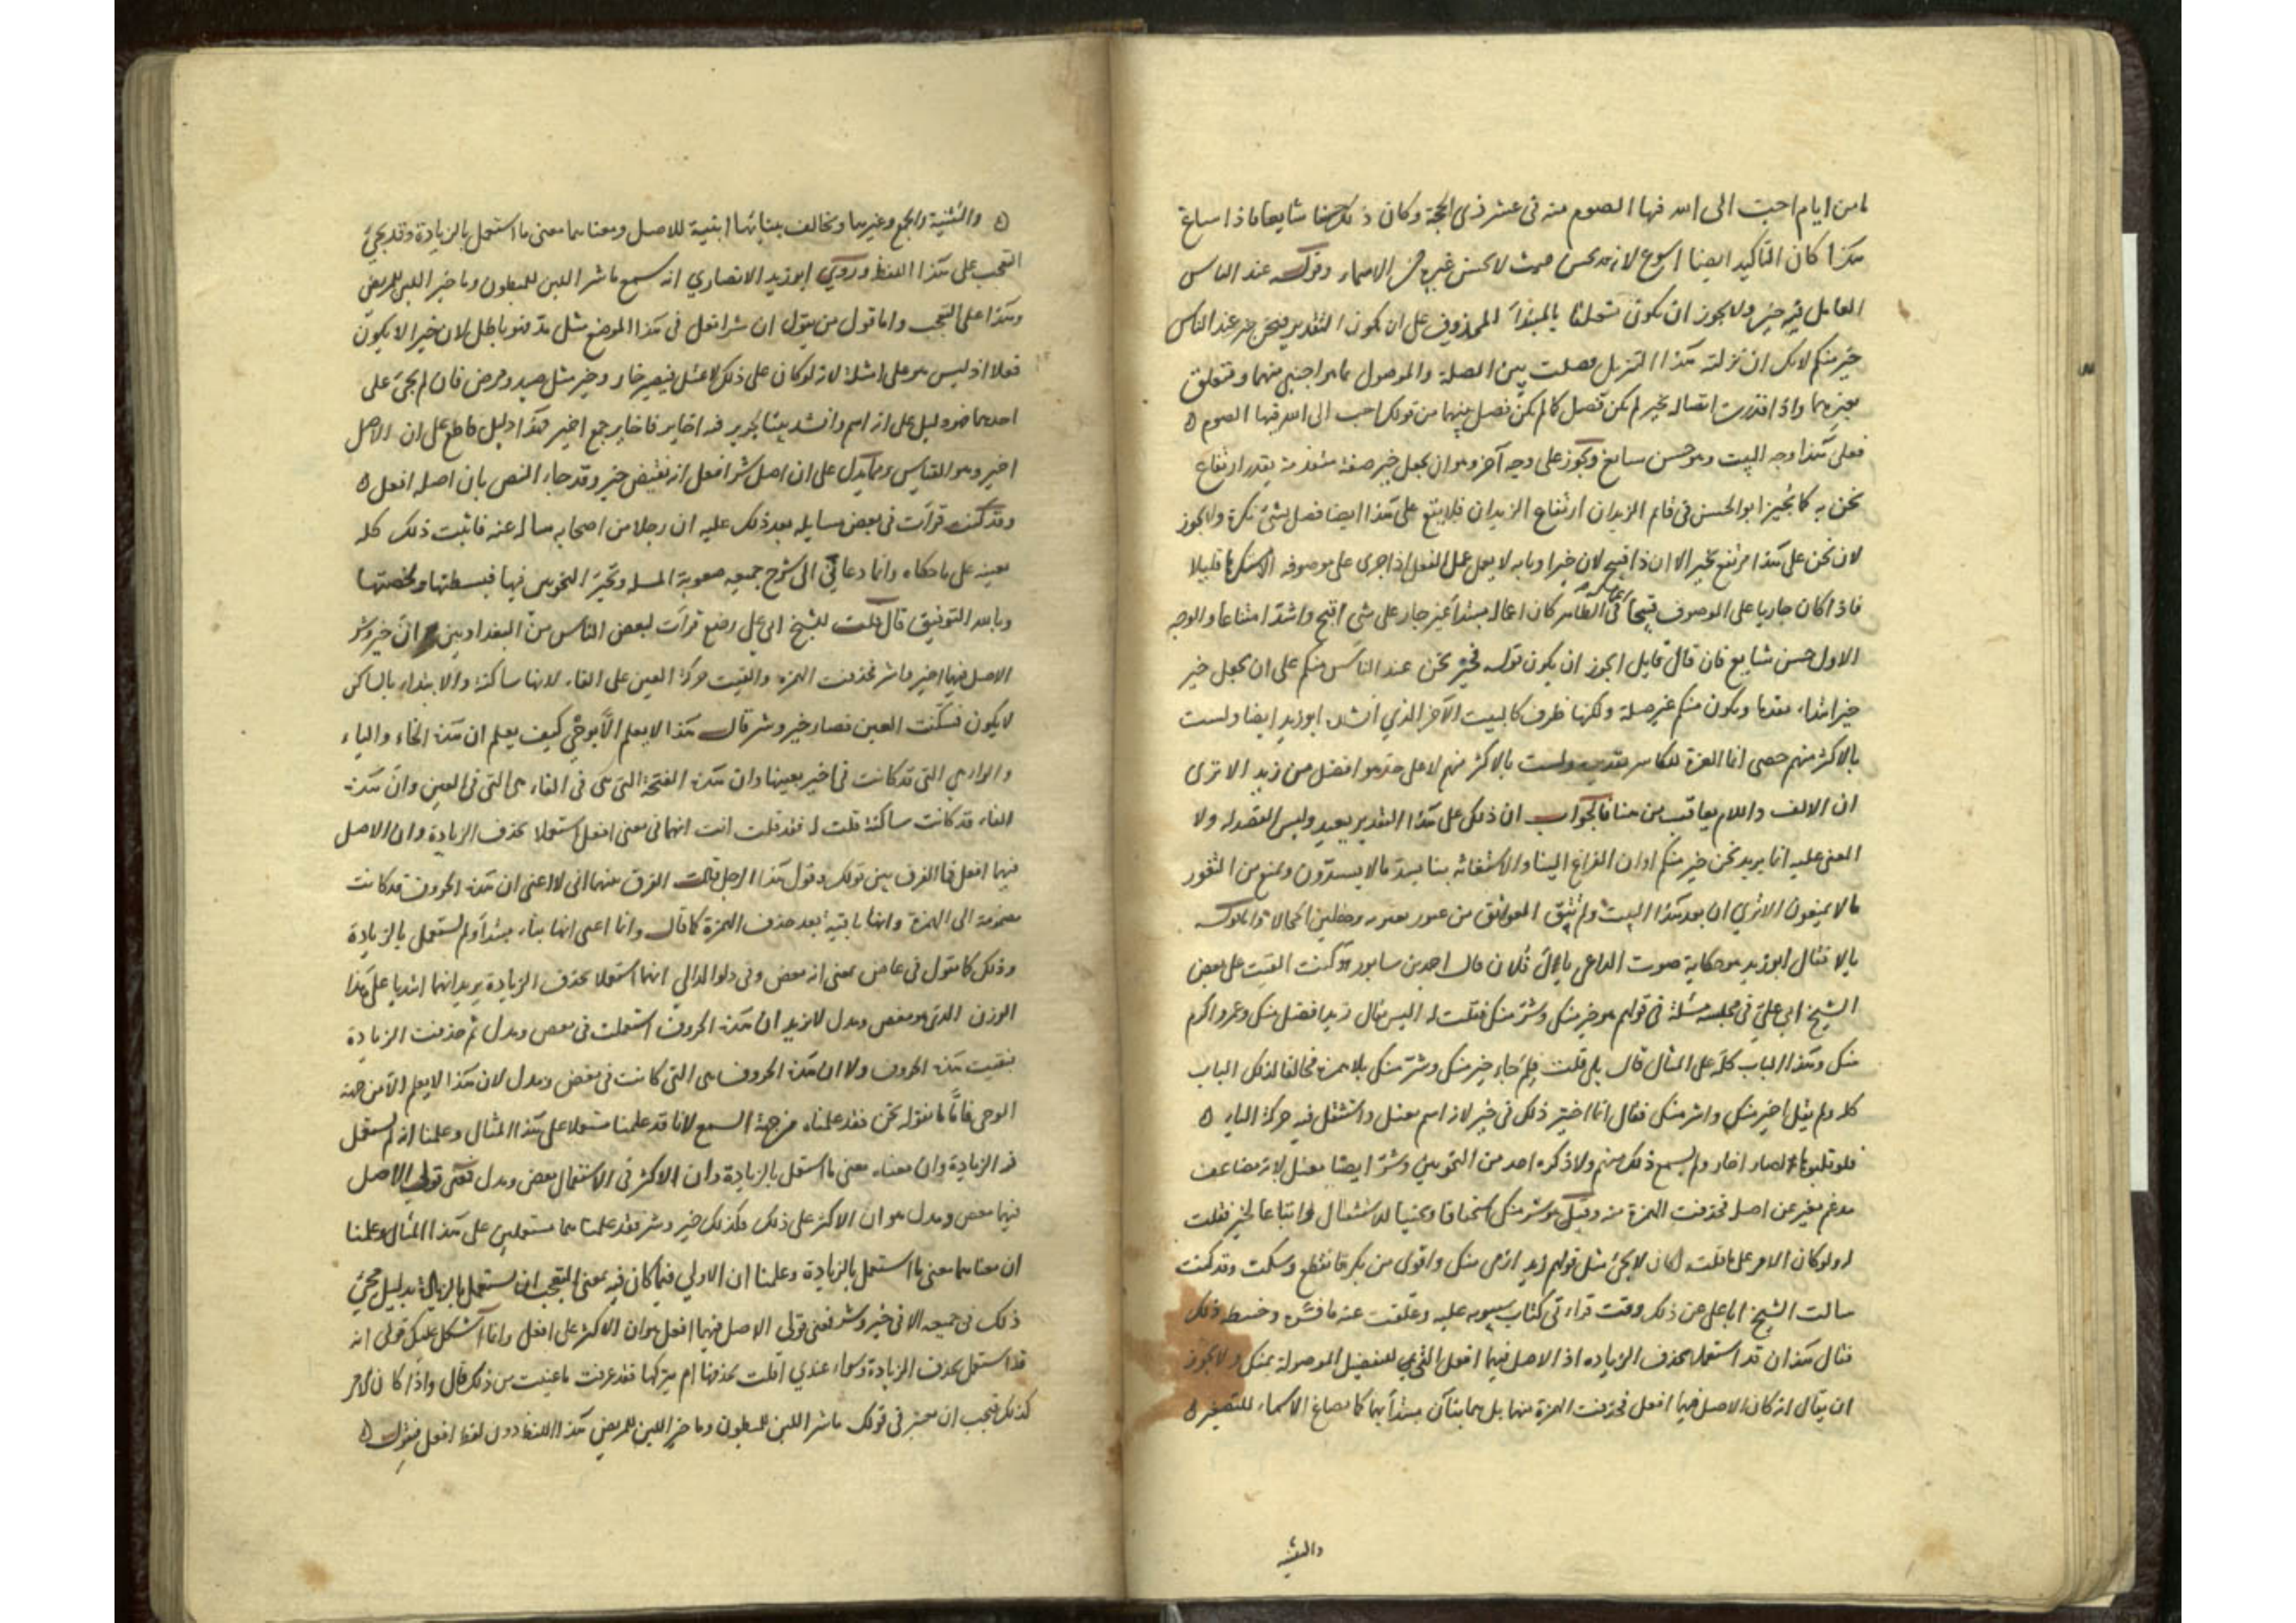 ما من ايام احب الى الله فيها الصوم منه فى عشر ذى الحجة وكان ذلك حسنا شايعا فاذا ساغ
هذا كان التاكيد ايضا اسوغ لانه قد يحسن حيث لا يحسن غيره من الاسماء وقوله عند الناس
العامل فيه خير ولا يجوز ان يكون متعلقا بالمبتدأ المحذوف على ان يكون التقدير فنحن خير عند الناس
خير منكم لانك ان نزلته هذا التنزيل فصلت بين الصلة والموصول بما هو اجنبى منهما ومتعلق
بغيرهما واذا قدرت اتصاله بخير لم يكن فصل كما لم يكن فصل بينهما من قولك احب الى الله فيها الصوم ه
فعلى هذا وجه البيت وهو حسن سايغ ويجوز على وجه آخر وهو ان يجعل خير صفة متقدمة يقدر ارتفاع
نحن به كما يجيز ابو الحسن فى قائم الزيدان ارتفاع الزيدان فلا يقع على هذا ايضا فصل بشئ نكرة ولا يجوز
لان نحن على هذا مرتفع بخير الا ان ذا قبيح لان خيرا وبابه لا يعمل عمل الفعل اذا جرى على موصوفه الا مستكرها قليلا
فاذا كان جاريا على الموصوف قبيحا فى الظاهر كان اعماله مبتدأ غير جار على شئ اقبح واشد امتناعا والوجه
الاول حسن شايع فان قال قايل ايجوز ان يكون قوله فخير نحن عند الناس منكم على ان يجعل خير
خبر ابتداء مقدما ويكون منكم غير صلة ولكنها ظرف كالبيت الآخر الذي انشده ابو زيد ايضا ولست
بالاكثر منهم حصى انما العزة للكاثر تقديره ولست بالاكثر منهم لا على حد هو افضل من زيد الا ترى
ان الالف واللام يعاقب من هنا فالجواب ان ذلك على هذا التقدير بعيد وليس القصد له ولا
المعنى عليه انما يريد نحن خير منكم اوان الفزع الينا والاستغاثه بنا نسد ما لا يسدّون ونمنع من الثغور
ما لا يمنعون الا ترى ان بعد هذا البيت ولم تثق العواتق من غيور بغيره وخلين الحجالا وقوله
يا لا قال ابو زيد هو حكاية صوت الداعى يا آل فلان قال احمد بن سابور وكنت القيت على بعض
الشيخ ابى على فى مجلسه مسئلة فى قولهم هو خير منك وشر منك فقلت له اليس يقال زيد افضل منك وعمرو اكرم
منك وهذا الباب كله على المثال قال بلى قلت فلم جاء خير منك وشر منك بلا همز مخالفا لذلك الباب
كله ولم يقل اخير منك واشر منك فقال انما اختير ذلك فى خير لانه اسم معتل واستثقل فيه حركة الياء ه
فلو قلبوها لصار اخار ولم يسمع ذلك منهم ولا ذكره احد من النحويين وشر ايضا معتل لانه مضاعف
مدغم مغير عن اصله فحذفت الهمزة منه وقيل هو شر منك استخفافا وتجنبا للاستثقال واتباعا لخير فقلت
له ولو كان الامر على ما قلت لكان لا يجئ مثل قولهم زيد ارمى منك واقوى من بكر فانقطع وسكت وقد كنت
سالت الشيخ ابا على عن ذلك وقت قراءتى كتاب سيبويه عليه وعلقت عنه ما فسّره وضبط ذلك
فقال هذان قد استعملا بحذف الزيادة اذ الاصل فيهما افعل الذي للتفضيل الموصولة بمنك ولا يجوز
ان يقال انه كان الاصل فيهما افعل فحذفت الهمزة منها بل هما بناآن مبتدأ بهما كما يصاغ الاسماء للتصغير ه
والتثنية
ه والتثنية والجمع وغيرها وتخالف بنياتها ابنية للاصل ومعناهما معنى ما استعمل بالزيادة وقد يجئ
التعجب على هذا اللفظ وروى ابو زيد الانصاري انه سمع ما شر اللبن للمبطون وما خير اللبن للمريض
وهذا على التعجب واما قول من يقول ان شرا فعل فى هذا الموضع مثل مدّ فهو باطل لان خيرا لا يكون
فعلا اذ ليس هو على امثلته لانه لو كان على ذلك لاعتل فيصير خار وخير مثل صيد ومرض فان لم يجئ على
احدهما ضرورة دليل على انه اسم وانشد بيتا لجرير فيه اخاير فاخاير جمع اخير فهذا دليل قاطع على ان الاصل
اخير وهو القياس ومما يدل على ان اصل شر افعل انه نقيض خير وقد جاء النص بان اصله افعل ه
وقد كنت قرأت فى بعض مسايله بعد ذلك عليه ان رجلا من اصحابه ساله عنه فاثبت ذلك كله
بعينه على ما حكاه وانما دعانى الى شرح جميعه صعوبة المسله وتحيّر النحويين فيها فبسطتها ولخصتها
وبالله التوفيق قال قلت للشيخ ابى على رضع قرأت لبعض الناس من البغداديين ان خير وشر
الاصل فيهما اخير واشر فحذفت الهمزه والقيت حركة العين على الفاء لانها ساكنة والابتداء بالساكن
لا يكون فسكّنت العين فصار خير وشر قال هذا لا يعلم الّا بوحى كيف يعلم ان هذه الخاء والياء
والراء هى التى قد كانت فى اخير بعينها وان هذه الفتحة التى هى فى الفاء هى التى فى العين وان هذه
الفاء قد كانت ساكنة قلت له فقد قلت انت انهما فى معنى افعل استعملا بحذف الزيادة وان الاصل
فيهما افعل فما الفرق بين قولك وقول هذا الرجل قال الفرق بينهما انى لا اعنى ان هذه الحروف قد كانت
مضمومة الى الهمزة وانها باقية بعد حذف الهمزة كما قال وانا اعنى انها بناء مبتدأ ولم تستعمل بالزيادة
وذلك كما نقول فى غاض بمعنى انه مغض وفى دلو الدالى انهما استعملا بحذف الزيادة يريد انهما ابتديا على هذا
الوزن الذى هو مغض ومدل لا نريد ان هذه الحروف استعملت فى مغض ومدل ثم حذفت الزيادة
فبقيت هذه الحروف ولا ان هذه الحروف هى التى كانت فى مغض ومدل لان هذا لا يعلم الّا من جهة
الوحى فامّا ما نقوله نحن فقد علمناه من جهة السمع لانا قد علمنا مستعملا على هذا المثال وعلمنا انه لم يستعمل
فيه الزيادة وان معناه معنى ما استعمل بالزيادة وان الاكثر فى الاستعمال مغض ومدل فمعنى قولى الاصل
فيهما مغض ومدل هو ان الاكثر على ذلك فكذلك خير وشر فقد علمناهما مستعملين على هذا المثال وعلمنا
ان معناهما معنى ما استعمل بالزيادة وعلمنا ان الاولى فيما كان فيه معنى التعجب ان يستعمل بالزيادة بدليل مجئ
ذلك فى جميعه الا فى خير وشر فمعنى قولى الاصل فيهما افعل هو ان الاكثر على افعل وانما أشكل عليك قولى انه
قد استعمل بحذف الزيادة وسواء عندي اقلت بحذفها ام بتركها فقد عرفت ما عنيت من ذلك قال واذا كان الامر
كذلك فيجب ان يجئ فى قولك ما شر اللبن للمبطون وما خير اللبن للمريض هذا اللفظ دون لفظ افعل فنقول ه